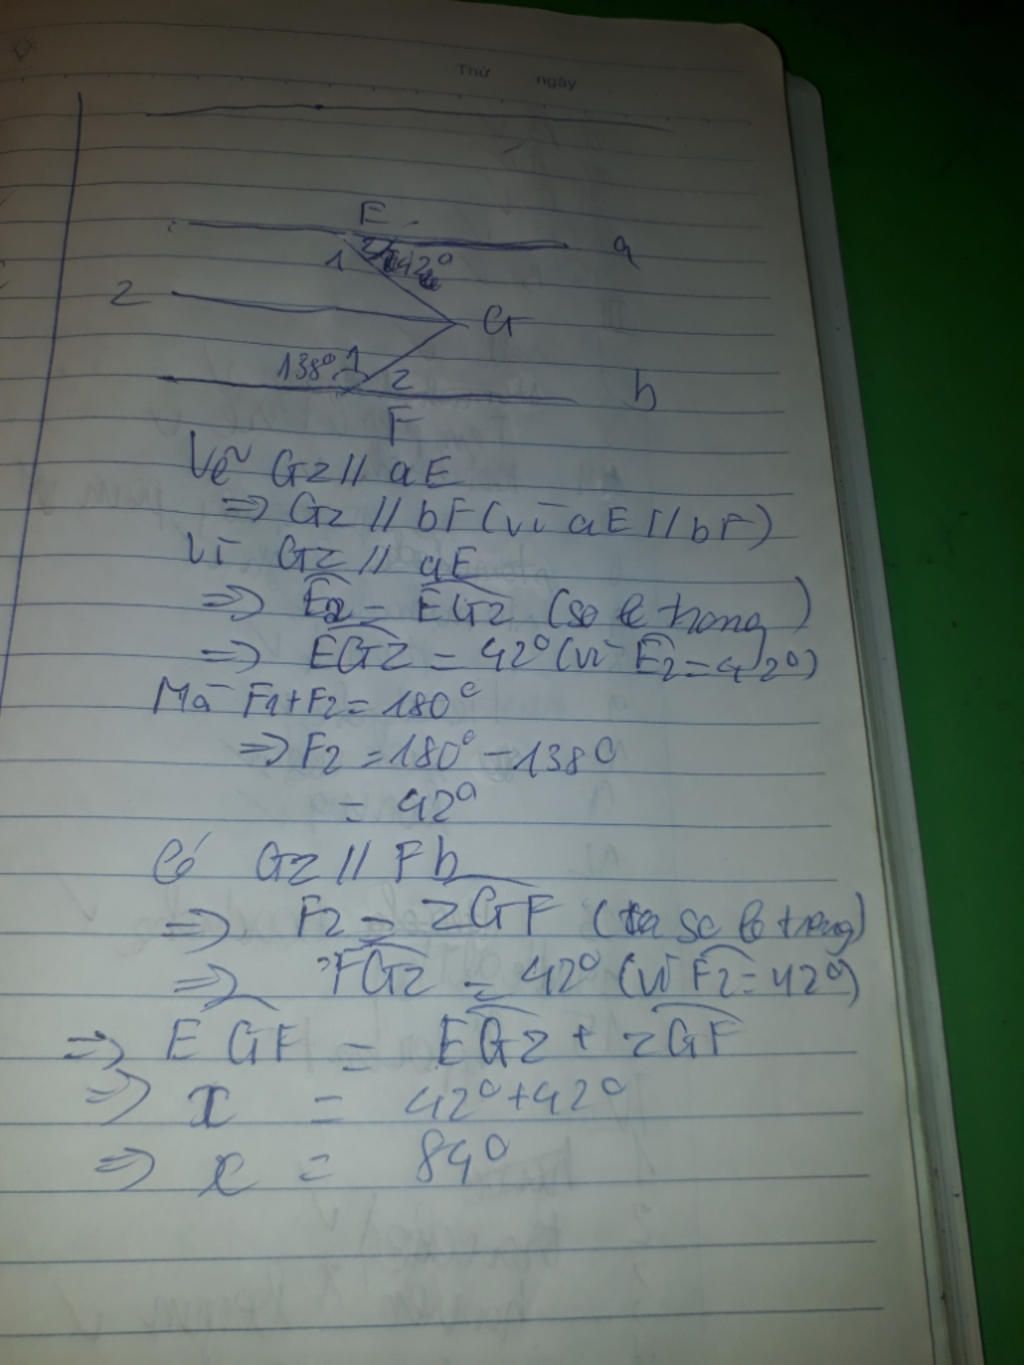 Thứ ngày
E
a
1 2 42°
z
G
138° 1 2
b
F
Vẽ Gz // aE
=> Gz // bF (vì aE // bF)
Vì Gz // aE
=> E2 = EGz (so le trong)
=> EGz = 42° (vì E2 = 42°)
Mà F1 + F2 = 180°
=> F2 = 180° - 138°
= 42°
Có Gz // Fb
=> F2 = zGF (so le trong)
=> FGz = 42° (vì F2 = 42°)
=> EGF = EGz + zGF
=> x = 42° + 42°
=> x = 84°